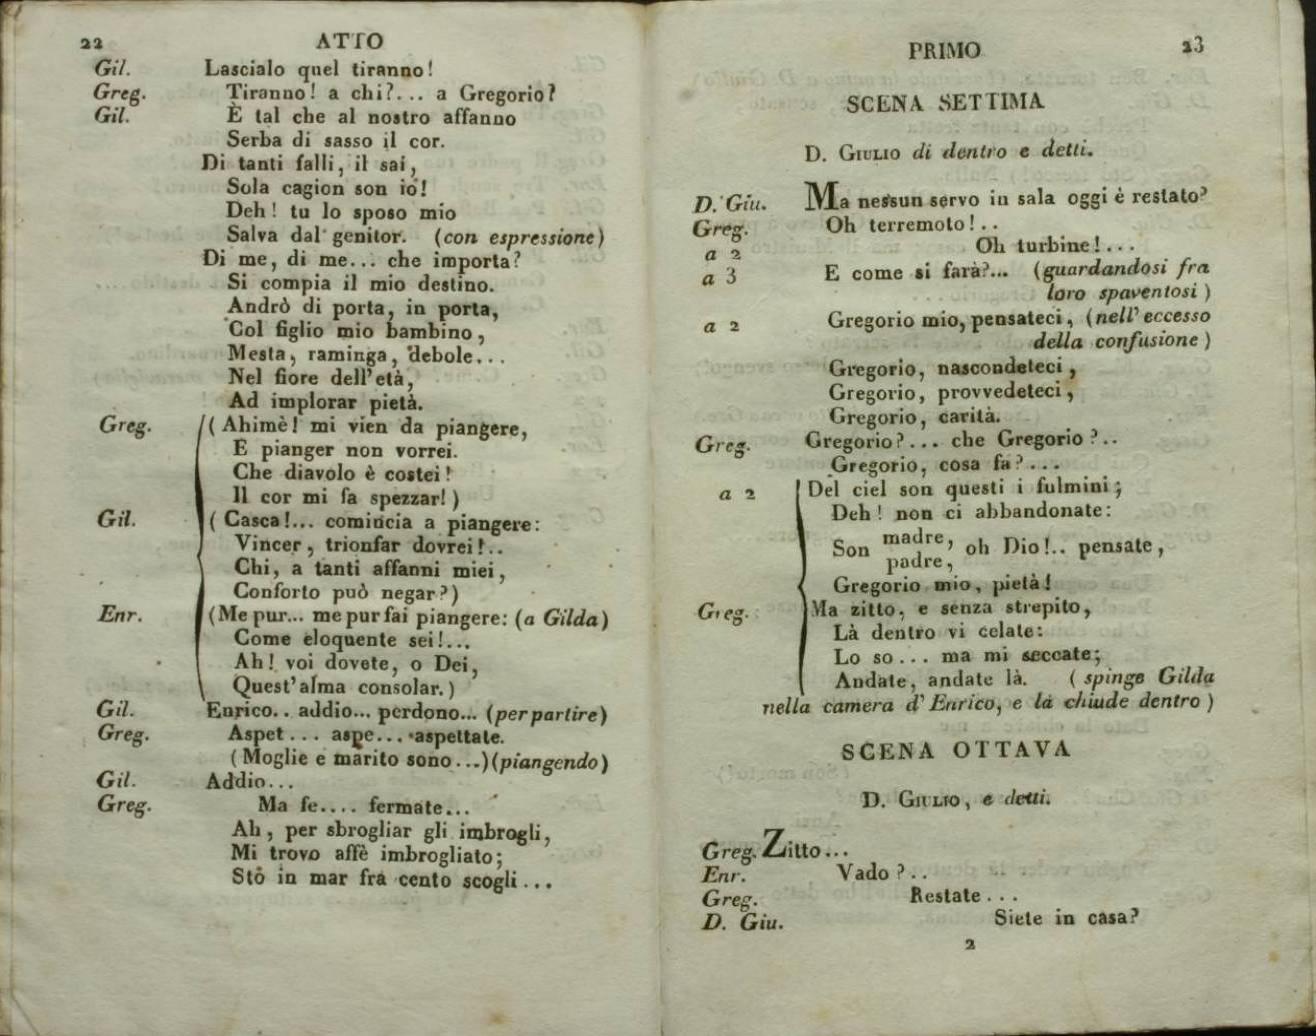 22 ATTO
Gil. Lascialo quel tiranno!
Greg. Tiranno! a chi?... a Gregorio?
Gil. È tal che al nostro affanno
Serba di sasso il cor.
Di tanti falli, il sai,
Sola cagion son io!
Deh! tu lo sposo mio
Salva dal genitor. (con espressione)
Di me, di me... che importa?
Si compia il mio destino.
Andrò di porta, in porta,
Col figlio mio bambino,
Mesta, raminga, debole...
Nel fiore dell'età,
Ad implorar pietà.
Greg. (Ahimè! mi vien da piangere,
E pianger non vorrei.
Che diavolo è costei!
Il cor mi fa spezzar!)
Gil. (Casca!... comincia a piangere:
Vincer, trionfar dovrei!..
Chi, a tanti affanni miei,
Conforto può negar?)
Enr. (Me pur... me pur fai piangere: (a Gilda)
Come eloquente sei!...
Ah! voi dovete, o Dei,
Quest'alma consolar.)
Gil. Enrico.. addio... perdono... (per partire)
Greg. Aspet... aspe... aspettate.
(Moglie e marito sono...)(piangendo)
Gil. Addio...
Greg. Ma fe.... fermate...
Ah, per sbrogliar gli imbrogli,
Mi trovo affè imbrogliato;
Stò in mar fra cento scogli...
PRIMO 23
SCENA SETTIMA
D. GIULIO di dentro e detti.
D. Giu. Ma nessun servo in sala oggi è restato?
Greg. Oh terremoto!..
a 2 Oh turbine!...
a 3 E come si farà?... (guardandosi fra
loro spaventosi)
a 2 Gregorio mio, pensateci, (nell'eccesso
della confusione)
Gregorio, nascondeteci,
Gregorio, provvedeteci,
Gregorio, carità.
Greg. Gregorio?... che Gregorio?..
Gregorio, cosa fa?...
a 2 Del ciel son questi i fulmini;
Deh! non ci abbandonate:
Son madre, oh Dio!.. pensate,
padre,
Gregorio mio, pietà!
Greg. Ma zitto, e senza strepito,
Là dentro vi celate:
Lo so... ma mi seccate;
Andate, andate là. (spinge Gilda
nella camera d'Enrico, e la chiude dentro)
SCENA OTTAVA
D. GIULIO, e detti.
Greg. Zitto...
Enr. Vado?..
Greg. Restate...
D. Giu. Siete in casa?
2